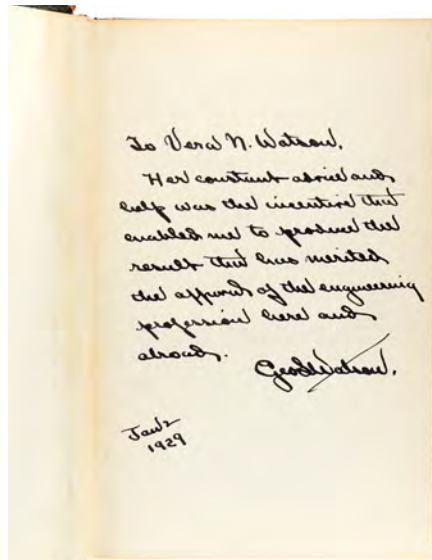 To Vera N. Watson.
Her constant advice and
help was the incentive that
enabled me to produce the
result that has merited
the approval of the engineering
profession here and
abroad.
Geo S Watson.
Jan 2
1929